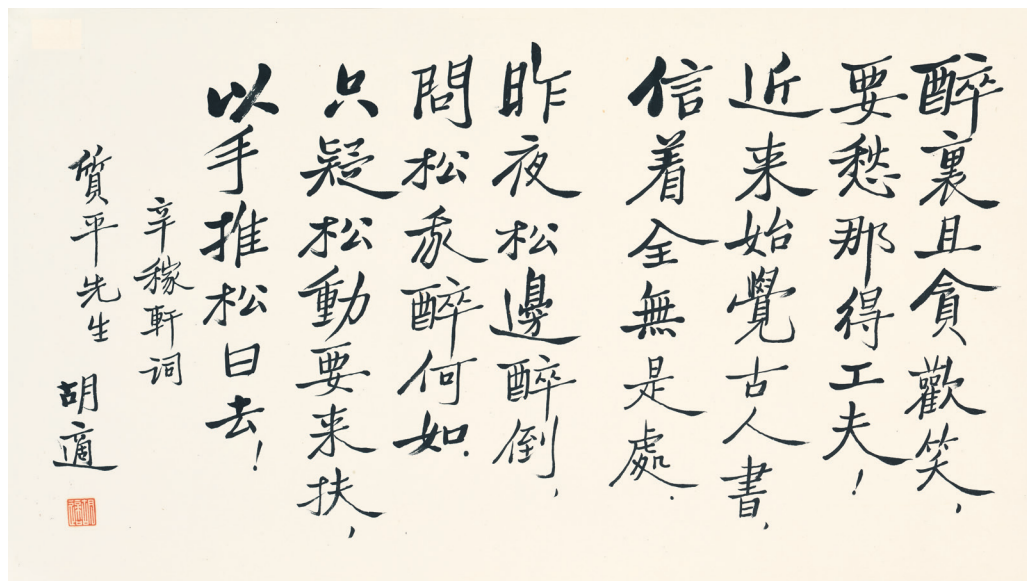 醉裏且貪歡笑，
要愁那得工夫！
近来始覺古人書，
信着全無是處．
昨夜松邊醉倒，
問松我醉何如．
只疑松動要来扶，
以手推松曰去！
辛稼軒詞
質平先生
胡適